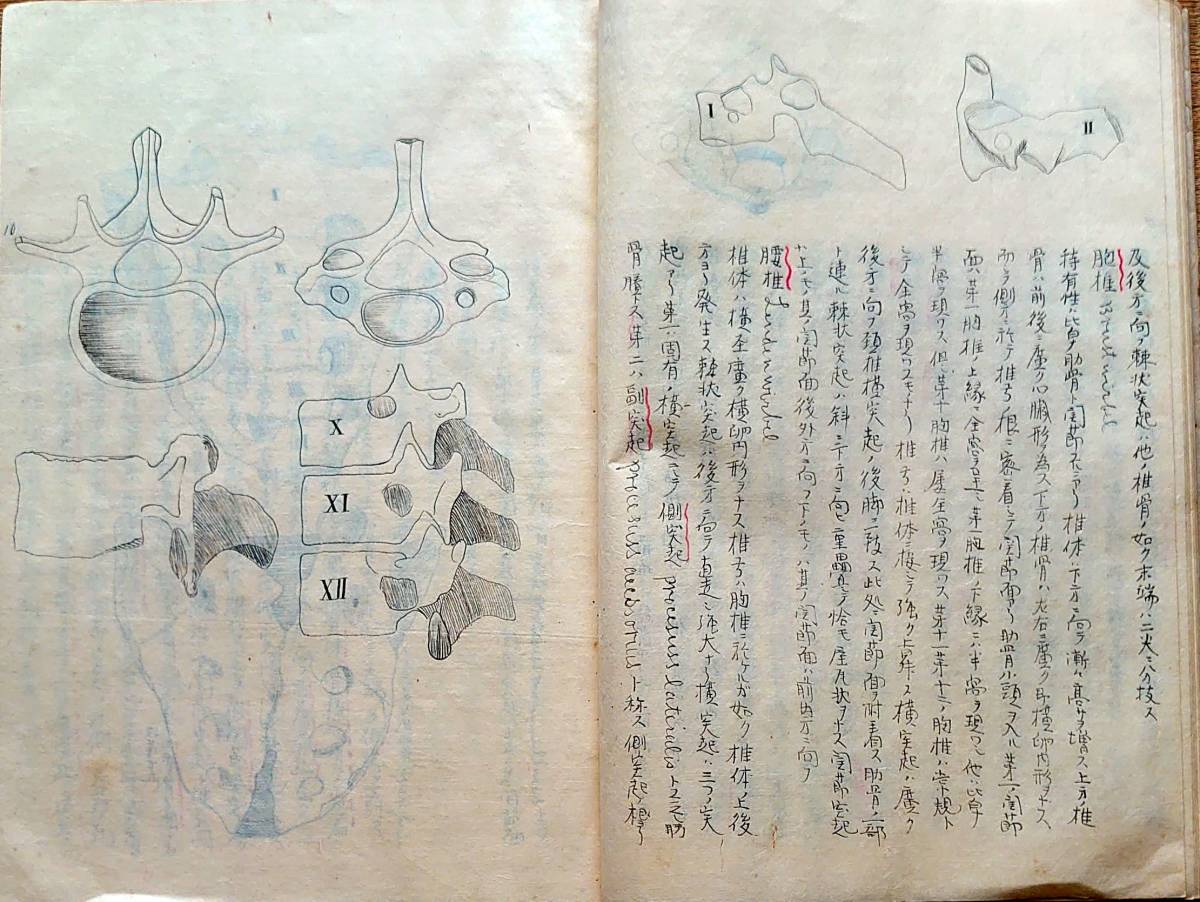 I
II
及後方ニ向フ棘状突起ハ他ノ椎骨ノ如ク末端ハ二尖ニ分枝ス
胸椎 Brustwirbel
特有性ハ皆ナ肋骨ト関節スルニアリ椎体ハ下方ニ向ヒ漸々高サヲ増ス上方ノ椎
骨ハ前後ニ廣ク心臓形ヲ為ス下方ノ椎骨ハ左右ニ廣ク即横卵円形ヲナス
而シテ側方ニ於テ椎弓根ニ密着シテ関節面アリ肋骨小頭ヲ入ル第一ノ関節
面ハ第一胸椎上縁ニ全窩ヲ呈シ第一胸椎ノ下縁ニハ半窩ヲ現ハシ他ハ皆ナ
半窩ヲ現ハス但第十胸椎ハ屡全窩ヲ現ハス第十一第十二ノ胸椎ハ常規ト
シテ全窩ヲ現ハスモノナリ椎弓ハ椎体後ニテ強ク上昇ス横突起ハ廣ク
後方ニ向フ頚椎横突起ノ後脚ニ一致ス此処ニ関節面ヲ附着ス肋骨ノ一部
ト連ル棘状突起ハ斜ニ下方ニ向ヒ重疊シテ恰モ屋瓦状ヲナス関節突起
ハ上ノモノ其ノ関節面後外方ニ向フ下ノモノハ其ノ関節面ハ前内方ニ向フ
腰椎 Lendenwirbel
椎体ハ横歪廣ク横卵円形ヲナス椎弓ハ胸椎ニ於ケルガ如ク椎体ノ上後
方ヨリ発生ス棘状突起ハ後方ニ向テ直走シ強大ナリ横突起ハ三ツノ突
起アリ第一固有ノ横突起ニシテ側突起 processus lateralis ト云ヒ肋
骨ト
第二ハ副突起 processus accessorius ト称ス側突起根
10
X
XI
XII